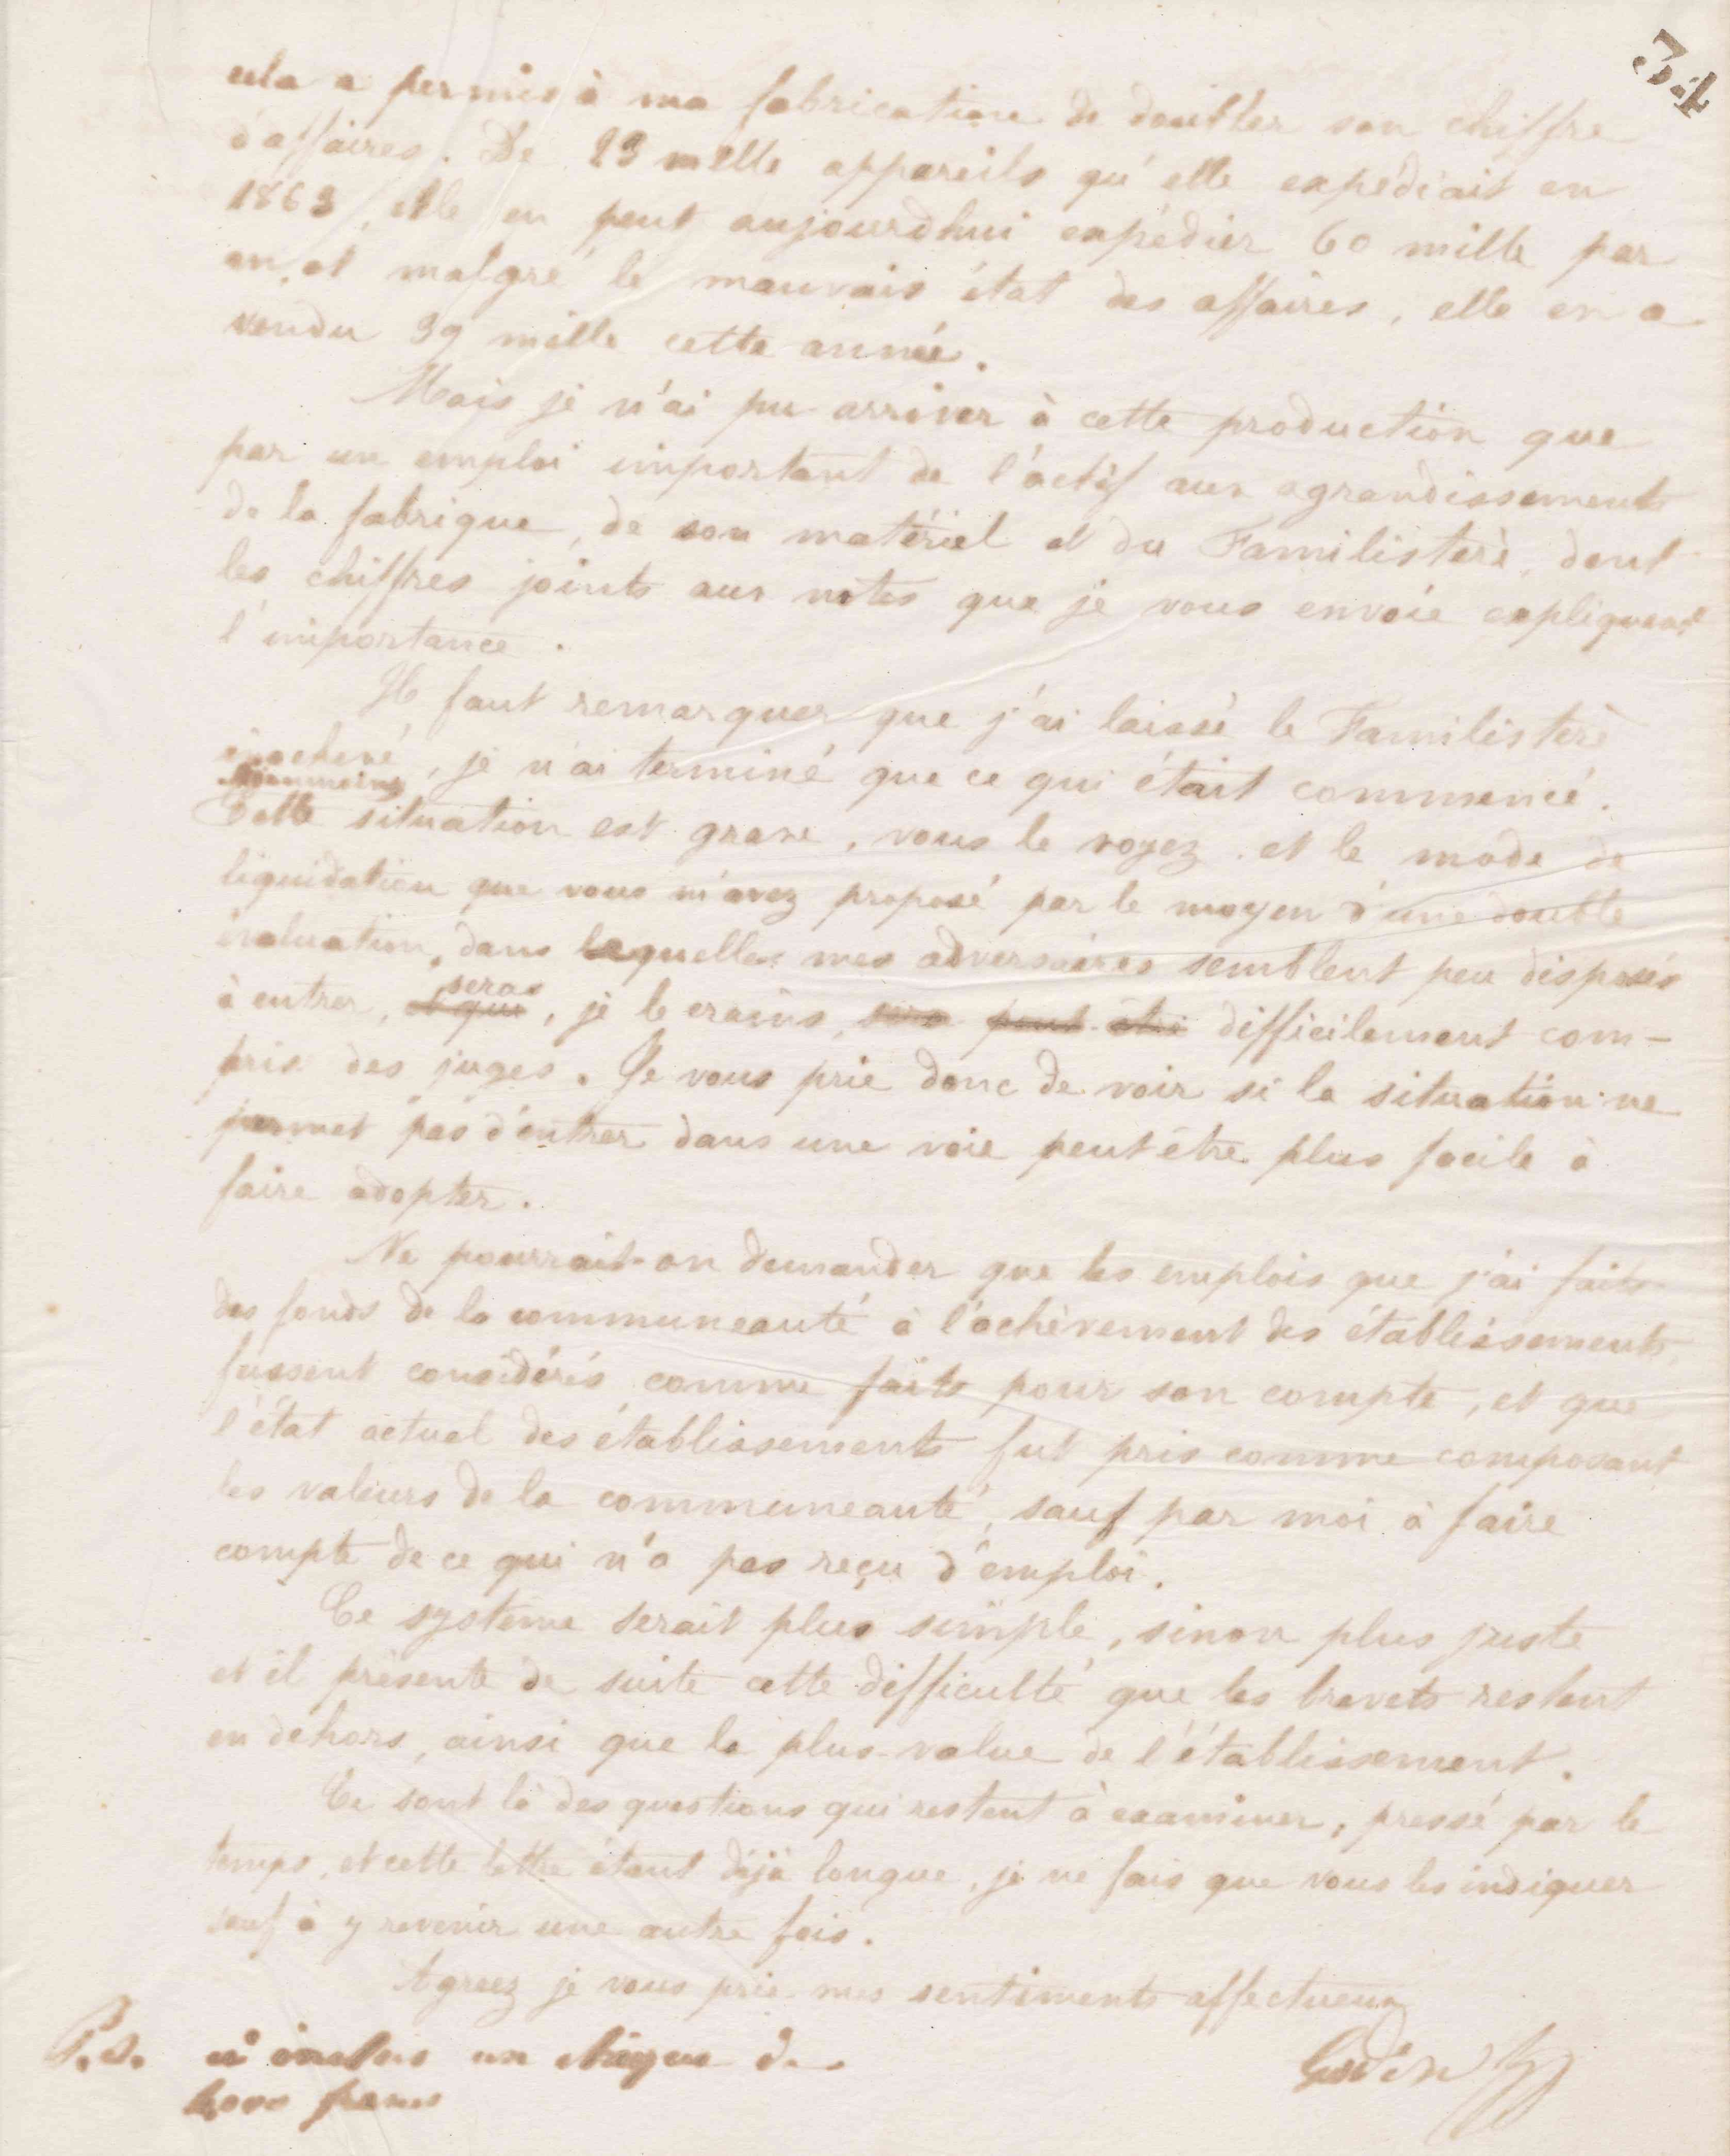 324
cela a permis à ma fabrication de doubler son chiffre
d'affaires. De 23 mille appareils qu'elle expédiait en
1863, elle en peut aujourd'hui expédier 60 mille par
an, et malgré le mauvais état des affaires, elle en a
vendu 39 mille cette année.
Mais je n'ai pu arriver à cette production que
par un emploi important de l'actif aux agrandissements
de la fabrique, de son matériel et du Familistère, dont
les chiffres joints aux notes que je vous envoie expliquent
l'importance.
Il faut remarquer que j'ai laissé le Familistère
inachevé, je n'ai terminé que ce qui était commencé.
Néanmoins
Cette situation est grave, vous le voyez et le mode de
liquidation que vous m'avez proposé par le moyen d'une double
évaluation, dans laquelle mes adversaires semblent peu disposés
sera
à entrer, et qui, je le crains, sera peut-être difficilement com-
pris des juges. Je vous prie donc de voir si la situation ne
permet pas d'entrer dans une voie peut être plus facile à
faire adopter.
Ne pourrait-on demander que les emplois que j'ai faits
des fonds de la communeauté à l'achèvement des établissements
fussent considérés comme faits pour son compte, et que
l'état actuel des établissements fut pris comme composant
les valeurs de la communeauté, sauf par moi à faire
compte de ce qui n'a pas reçu d'emploi.
Ce système serait plus simple, sinon plus juste
et il présente de suite cette difficulté que les brevets restent
en dehors, ainsi que la plus-value de l'établissement.
Ce sont là des questions qui restent à examiner, pressé par le
temps, et cette lettre étant déjà longue, je ne fais que vous les indiquer
sauf à y revenir une autre fois.
Agréez je vous prie mes sentiments affectueux
Godin
P.S. ci inclus un chèque de
4000 francs